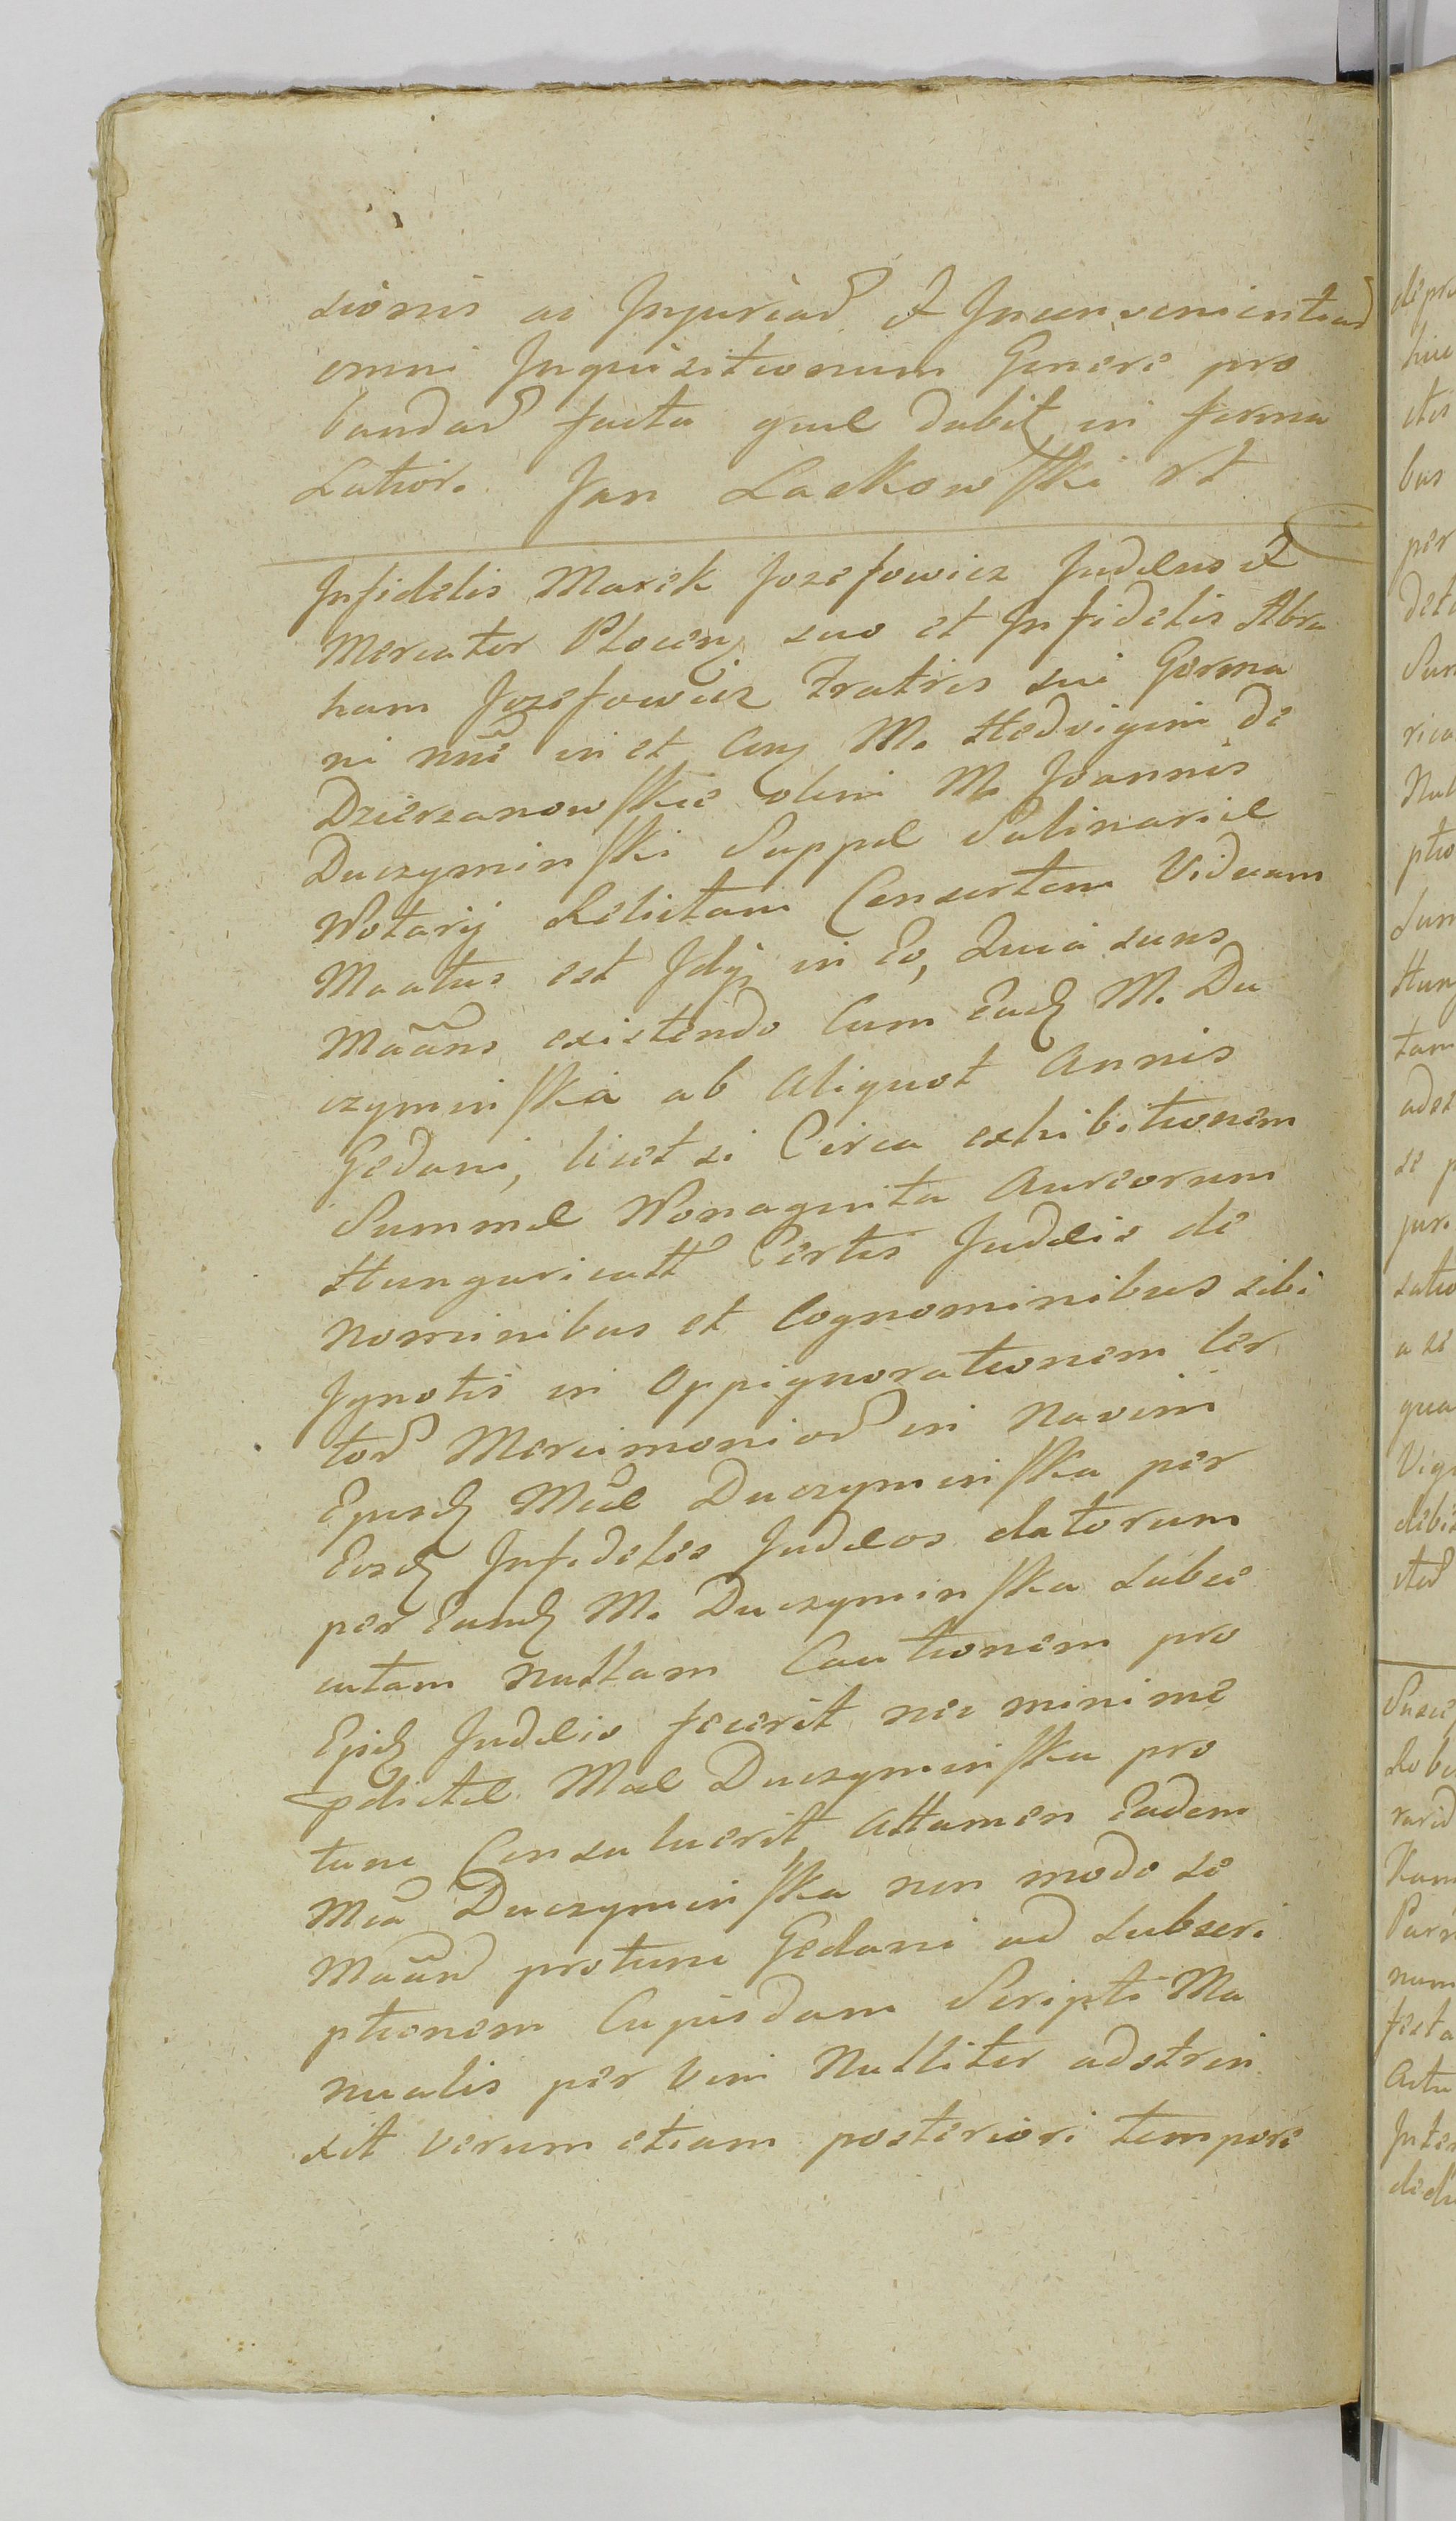 sionis ac Injuriað et Inconvenientiað
omni Inquisitionum Genere pro
bandað facta quæ dabit in forma
Latior. Jan Lackowski mp
Infidelis Marek Jozefowicz Judæus et
Mercator Plocen suo et Infidelis Abra
ham Jozefowicz Fratris sui Germa
ni nne in et Con M. Hedvigim de
Dzierzanowskie olim M. Joannis
Duczyminski Suppæ Salinariæ
Notarij Relictam Consortem Viduam
Maatus est Idq in Eo, Quia suns
Maans existendo Cum Ead M. Du
czyminska ab Aliquot Annis
Gedani, licet si Circa exhibitionem
Summæ Nonaginta Aureorum
Hungaricall Certis Judæis de
Nominibus et Cognominibus sibi
Ignotis in Oppignorationem Cer
tor Mercimonior in Navim
Ejusd Mcæ Duczyminska per
Eosd Infideles Judæos datorum
per Eamd M. Duczyminska Subse
cutam nullam Cautionem pro
Ejsd Judæis fecerit nec minime
pdictæ Mcæ Duczyminska pro
tunc Consuluerit, Attamen Eadem
Mca Duczyminska non modo se
Maand protunc Gedani ad Subscri
ptionem Cujusdam Scripti Ma
nualis per Vim Nulliter adstrin
xit verum etiam posteriori tempore